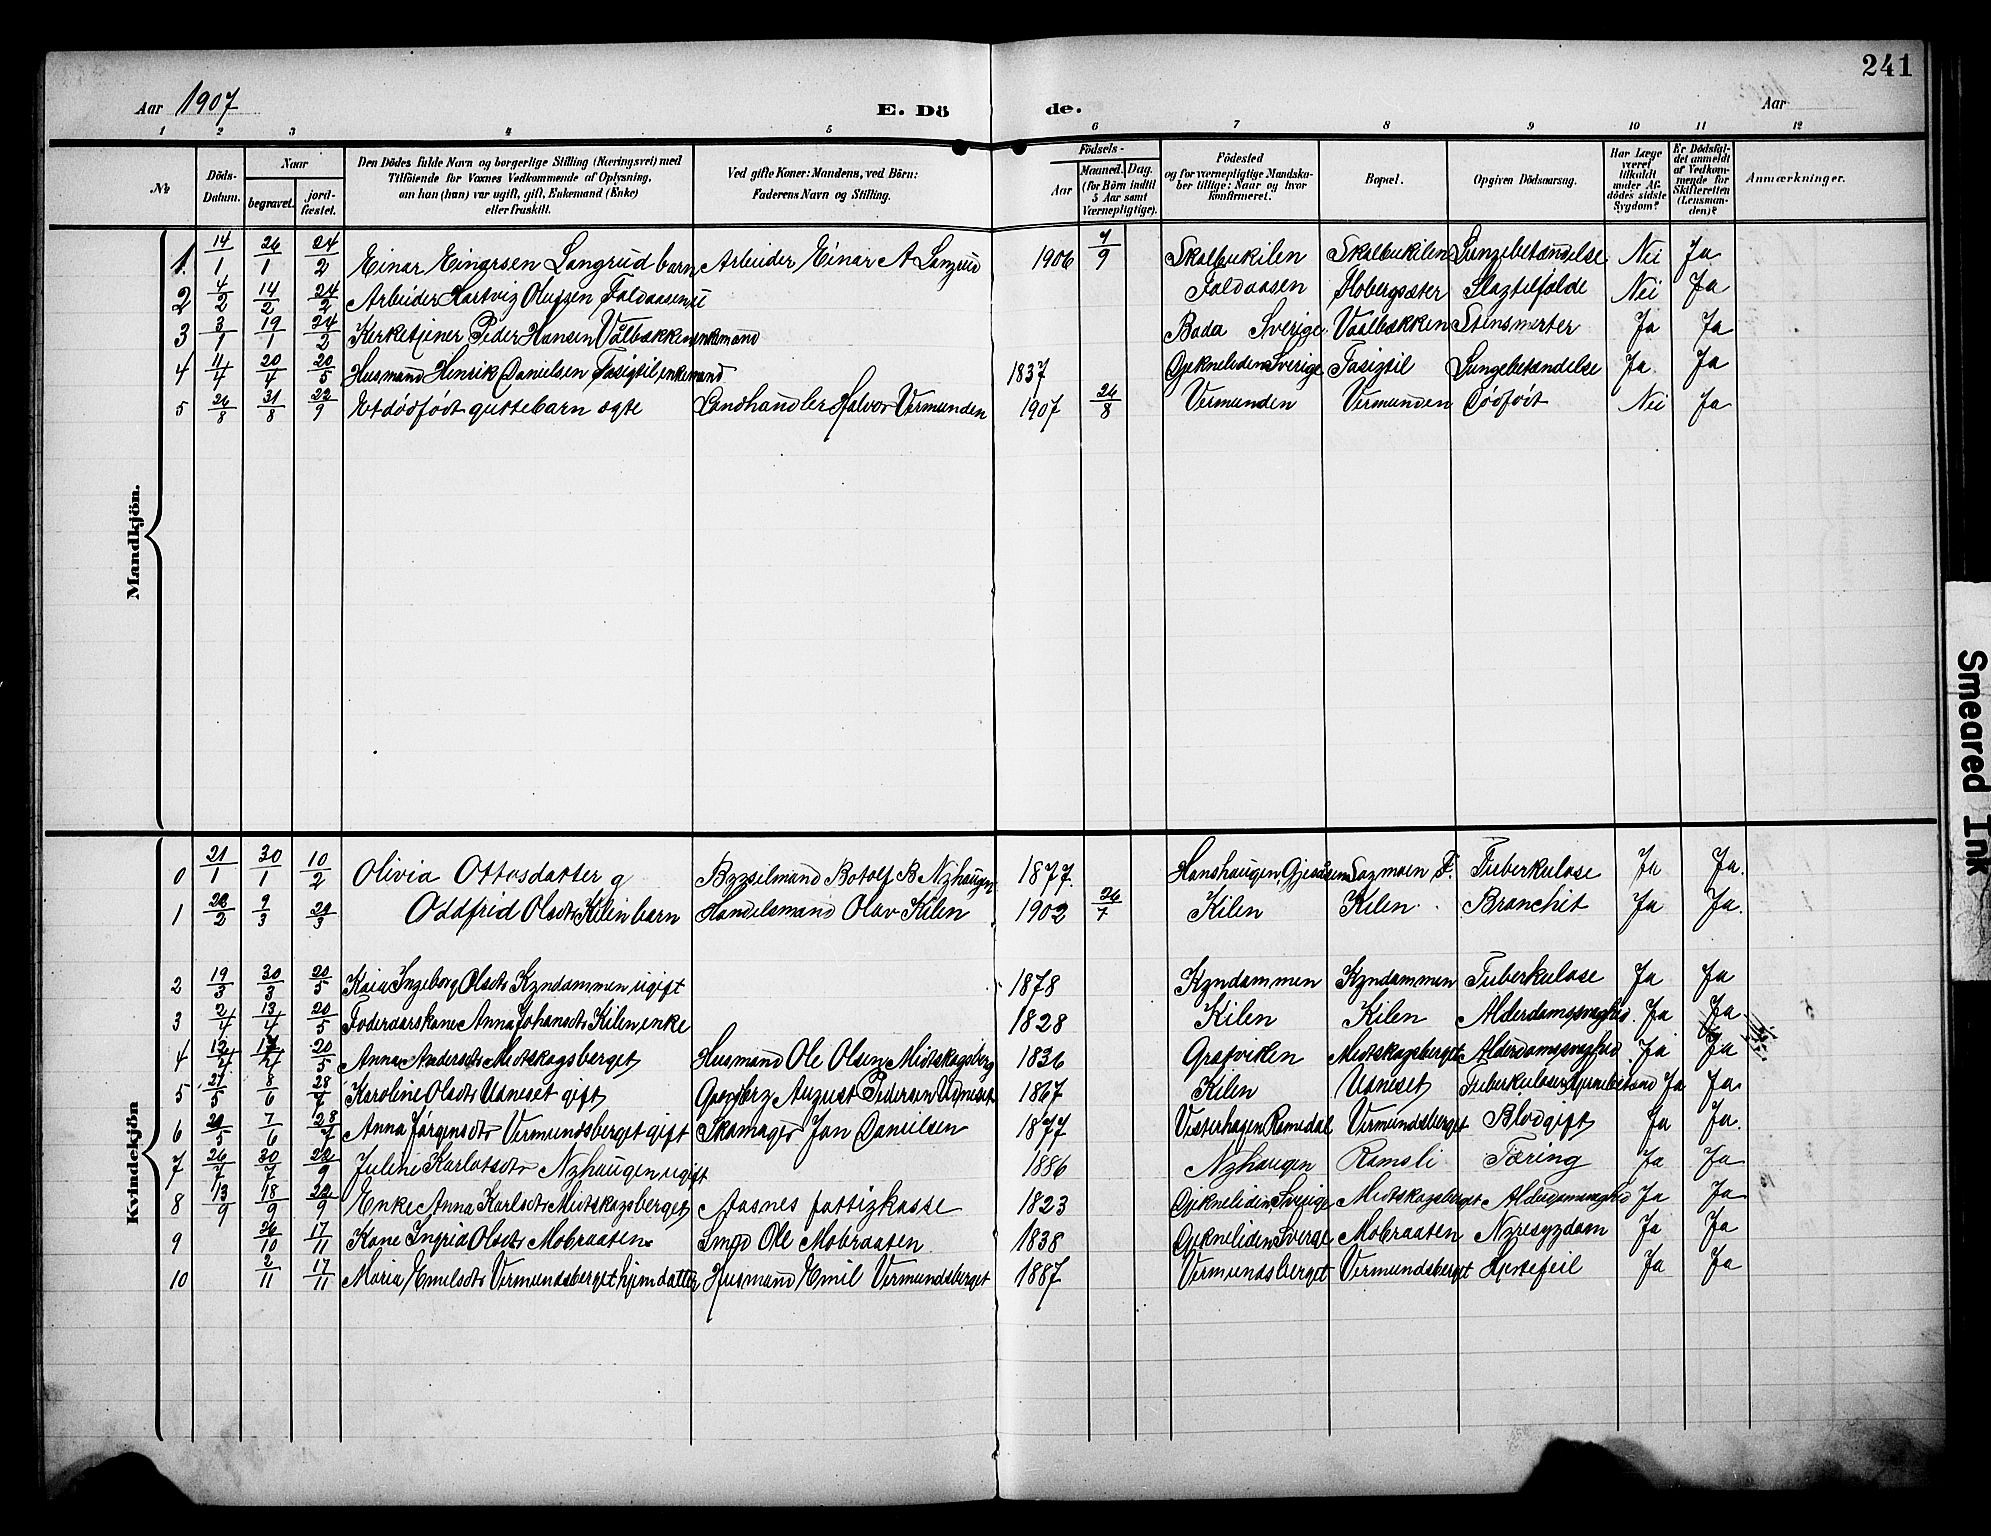 241
Aar 1907 E. Döde. Aar
1 2 3 4 5 6 7 8 9 10 11 12
No Döds-Datum. Naar begravet. jord-fæstet. Den Dödes fulde Navn og borgerlige Stilling (Næringsvei) med Tilföiende for Voxnes Vedkommende af Oplysning, om han (hun) var ugift, gift, Enkemand (Enke) eller fraskilt. Ved gifte Koner: Mandens, ved Börn: Faderens Navn og Stilling. Födsels- Aar Maaned. Dag. (for Börn indtil 5 Aar samt Værnepligtige). Födested og for værnepligtige Mandskaber tillige: Naar og hvor konfirmeret. Bopæl. Opgiven Dödsaarsag. Har Læge været tilkaldt under Afdödes sidste Sygdom? Er Dödsfaldet anmeldt af Vedkommende for Skifteretten (Lensmanden)? Anmærkninger.
Mandkjön.
1. 14/1 26/1 24/2 Einar Einarsen Langrud barn Arbeider Einar A Langrud 1906 7/9 Skalbukilen Skalbukilen Lungebetændelse Nei Ja
2 4/2 14/2 24/2 Arbeider Hartvig Olufsen Faldaasen u Faldaasen Flobergsæter Slagtilfælde Nei Ja
3 3/1 19/1 24/2 Kirketjener Peder Hansen Vålbækken enkemand Bada Sverige Vaalbækken Stensmerter Ja Ja
4 11/4 20/4 20/5 Husmand Henrik Danielsen Fasigsil, enkemand 1837 Gjekneliden Sverige Fasigsil Lungebetændelse Ja Ja
5 26/8 31/8 22/9 Et dödfödt guttebarn egte Landhandler Halvor Vermunden 1907 26/8 Vermunden Vermunden Dödfödt Nei Ja
Kvindekjön
0 21/1 30/1 10/2 Olivia Ottosdatter g Bygselmand Botolf B Nyhaugen 1877. Hanshaugen Gjesåsen Sagmoen F. Tuberkulose Ja Ja.
1 28/2 9/3 29/3 Oddfrid Olsdtr Kilen barn Handelsmand Olav Kilen 1902 26/7 Kilen Kilen Bronchit Ja Ja.
2 19/3 30/3 20/5 Kaia Ingeborg Olsdtr Kyndammen ugift 1878 Kyndammen Kyndammen Tuberkulose Ja Ja
3 2/4 13/4 20/5 Foderaarskone Anna Johansdtr Kilen, enke 1828 Kilen Kilen Alderdomssvaghed. Ja Ja.
4 12/4 20/5 Anna Andersdtr Midtskogsberget Husmand Ole Olsen Midtskogsberg 1836 Grafviken Midtskogsberget Alderdomssvaghed. Ja Ja
5 27/5 8/6 28/7 Karoline Olsdtr Uaneset gift August Pedersen 1867 Kilen Uaneset Tuberkulose Ja Ja
6 29/5 7/6 28/7 Anna Jörgensdtr Vermundsberget gift Skomager Jon Danielsen 1877 Vesterhagen Romedal Vermundsberget Blodgift Ja Ja.
7 26/7 30/7 22/9 Juline Karlotsdtr Nyhaugen ugift 1886 Nyhaugen Ramsli Tæring Ja Ja
8 13/9 18/9 29/9 Enke Anna Karlsdtr Midtskogsberget Aasnes fattigkasse 1823 Gjekneliden Sverige Midtskogsberget Alderdomssvaghed Ja Ja
9 26/10 17/11 Kone Ingrid Olsdtr Mobraaten Smed Ole Mobraaten 1838 Gjekneliden Sverige Mobraaten Nyresygdom Ja Ja
10 2/11 17/11 Maria Emilsdtr Vermundsberget hjemdatter Husmand Emil Vermundsberget 1887 Vermundsberget Vermundsberget Hjertefeil Ja Ja
Smeared Ink